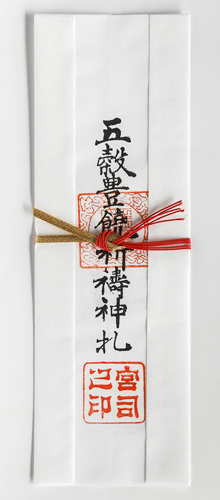 五穀豊饒祈禱神札
宮司之印